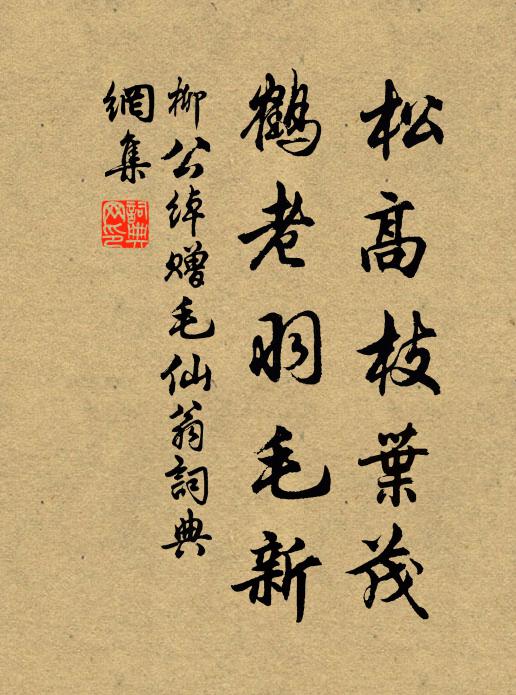 松高枝葉茂
鶴老羽毛新
柳公綽贈毛仙翁詞典
網集
詞典
网印